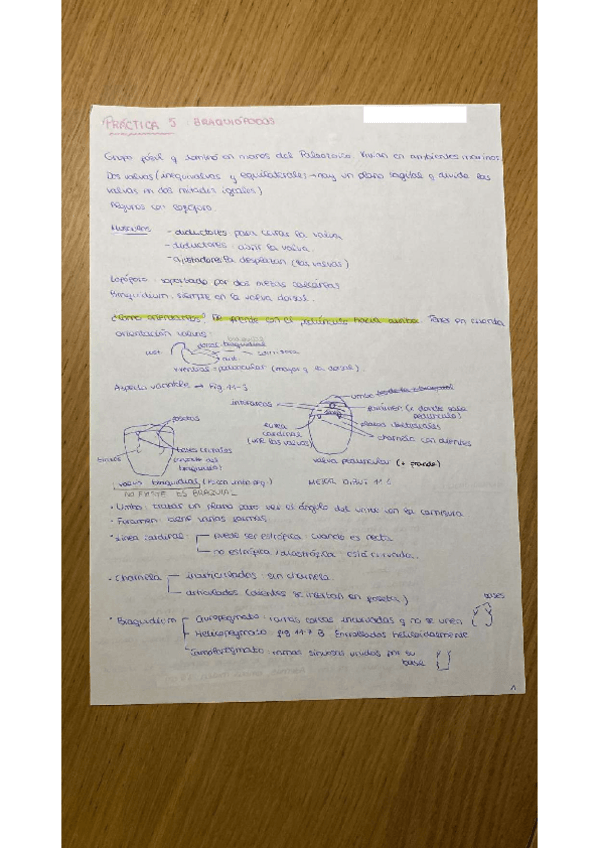 PRÁCTICA 5 : BRAQUIÓPODOS
Grupo fósil q dominó en mares del Paleozoico. Vivían en ambientes marinos.
Dos valvas (inequivalvas y equilaterales → hay un plano sagital q divide las
valvas en dos mitades iguales)
Algunos con lofóforo.
Músculos - aductores para cerrar la valva
- diductores : abrir la valva.
- ajustadores la desplazan (las valvas)
Lofóforo : soportado por dos calcáreas
Braquidium : siempre en la valva dorsal.
¿Cómo orientarlas? De frente con el pedúnculo hacia arriba. Tener en cuenta
orientación valvas :
dorsal braquidial
comisura
ventral = peduncular (mayor q la dorsal).
Aspecto variable → Fig 11-3
umbo
interarea
foramen (x donde sale
pedúnculo)
fosetas
placas deltidiales
área
cardinal
(une las valvas)
charnela con dientes
bases crurales
(soporte del
braquidio)
valva peduncular (+ grande)
valva braquidial
NO EXISTE ES BRAQUIAL
MEJOR DIBUJO 11.
· Umbo : trazas un plano para ver el ángulo del umbo con la comisura
· Foramen : tiene varias formas
· Línea cardinal : puede ser estrófica : cuando es recta
no estrófica / astrófica : está curvada..
· Charnela inarticulados : sin charnela
articulados (dientes se insertan en fosetas)
bases
· Braquidium Ancropegmato : ramas cortas incurvadas q no se unen
Helicopegmato : fig 11-7 B Enrolladas helicoidalmente
ramas sinuosas unidas por su
base